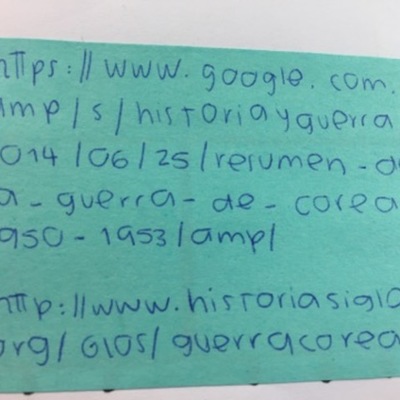 https://www.google.com.
amp/s/historiayguerra
014/06/25/resumen-de
a-guerra-de-corea
950-1953/amp/
http://www.historiasiglo
org/GLOS/guerracorea